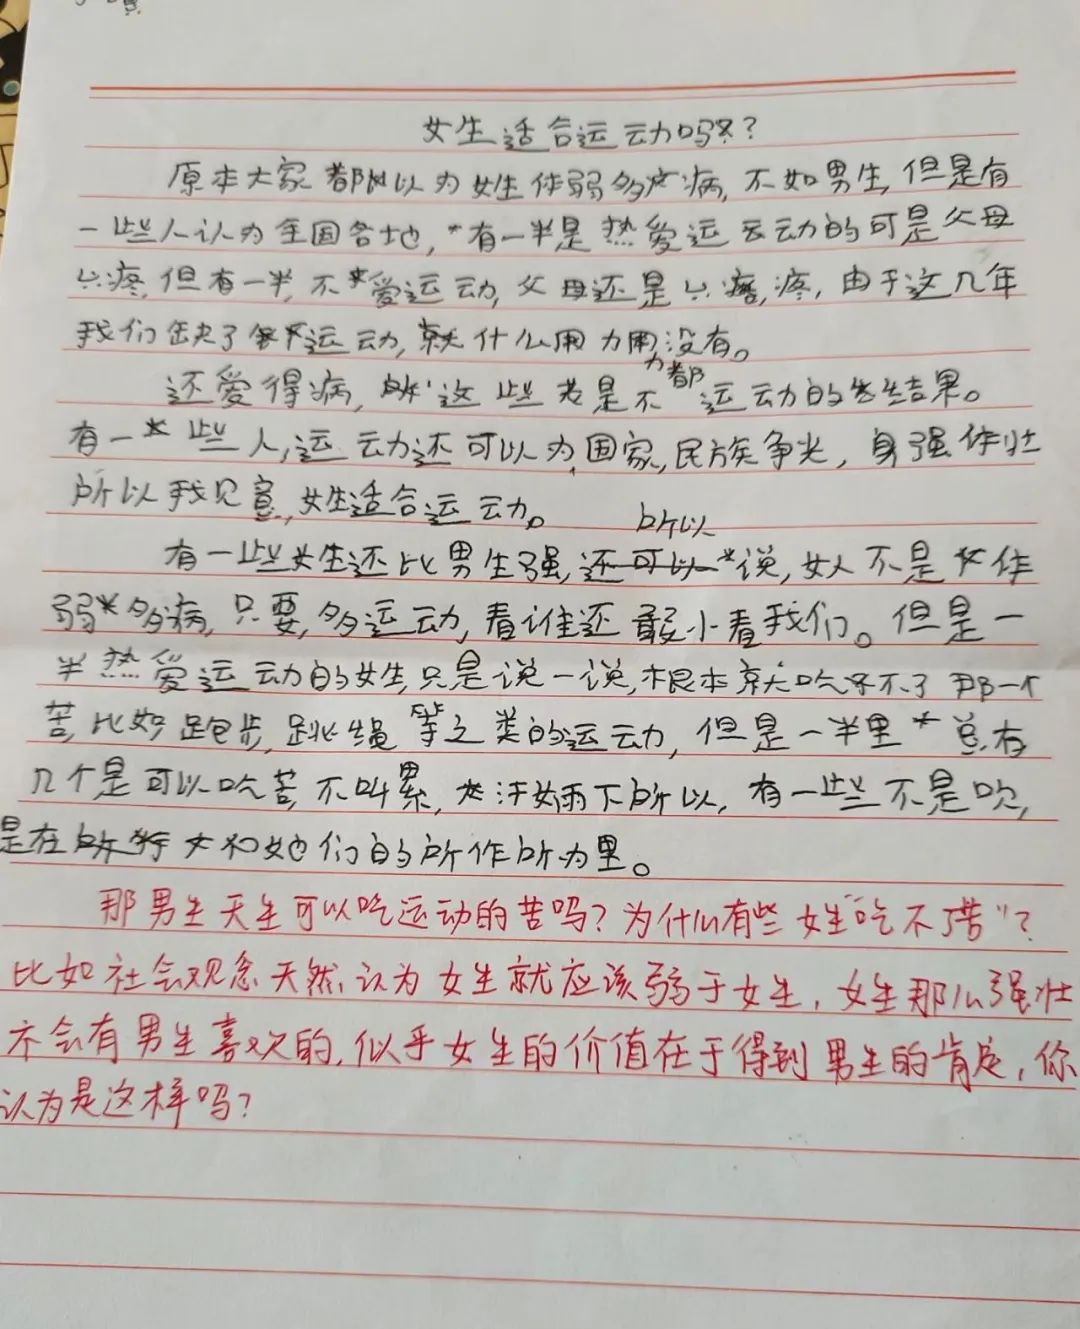 女生适合运动吗?
原本大家都以为女生体弱多病,不如男生,但是有
一些人认为全国各地,有一半是热爱运动的可是父母
心疼,但有一半,不爱运动,父母还是心疼,由于这几年
我们缺了运动,就什么用力用没有。
力都
还爱得病,所这些都是不运动的结果。
有一些人,运动还可以为国家,民族争光,身强体壮
所以我见意,女生适合运动。
所以
有一些女生还比男生强,还可以说,女人不是体
弱多病,只要,多运动,看谁还敢小看我们。但是一
半热爱运动的女生,只是说一说,根本就吃不了那一个
苦,比如跑步,跳绳等之类的运动,但是一半里总有
几个是可以吃苦,不叫累,汗如雨下所以,有一些不是吹,
是在她们的所作所为里。
那男生天生可以吃运动的苦吗?为什么有些女生"吃不了苦"?
比如社会观念天然认为女生就应该弱于女生,女生那么强壮
不会有男生喜欢的,似乎女生的价值在于得到男生的肯定,你
认为是这样吗?